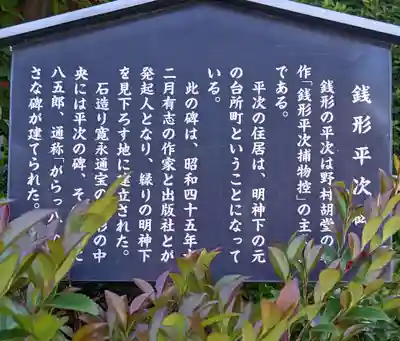 銭形平次
銭形の平次は野村胡堂の
作「銭形平次捕物控」の主
である。
平次の住居は、明神下の元
の台所町ということになって
いる。
此の碑は、昭和四十五年
二月有志の作家と出版社とが
発起人となり、縁りの明神下
を見下ろす地に建立された。
石造り寛永通宝の 形の中
央には平次の碑、そ と
八五郎、通称「がらっ八
さな碑が建てられた。